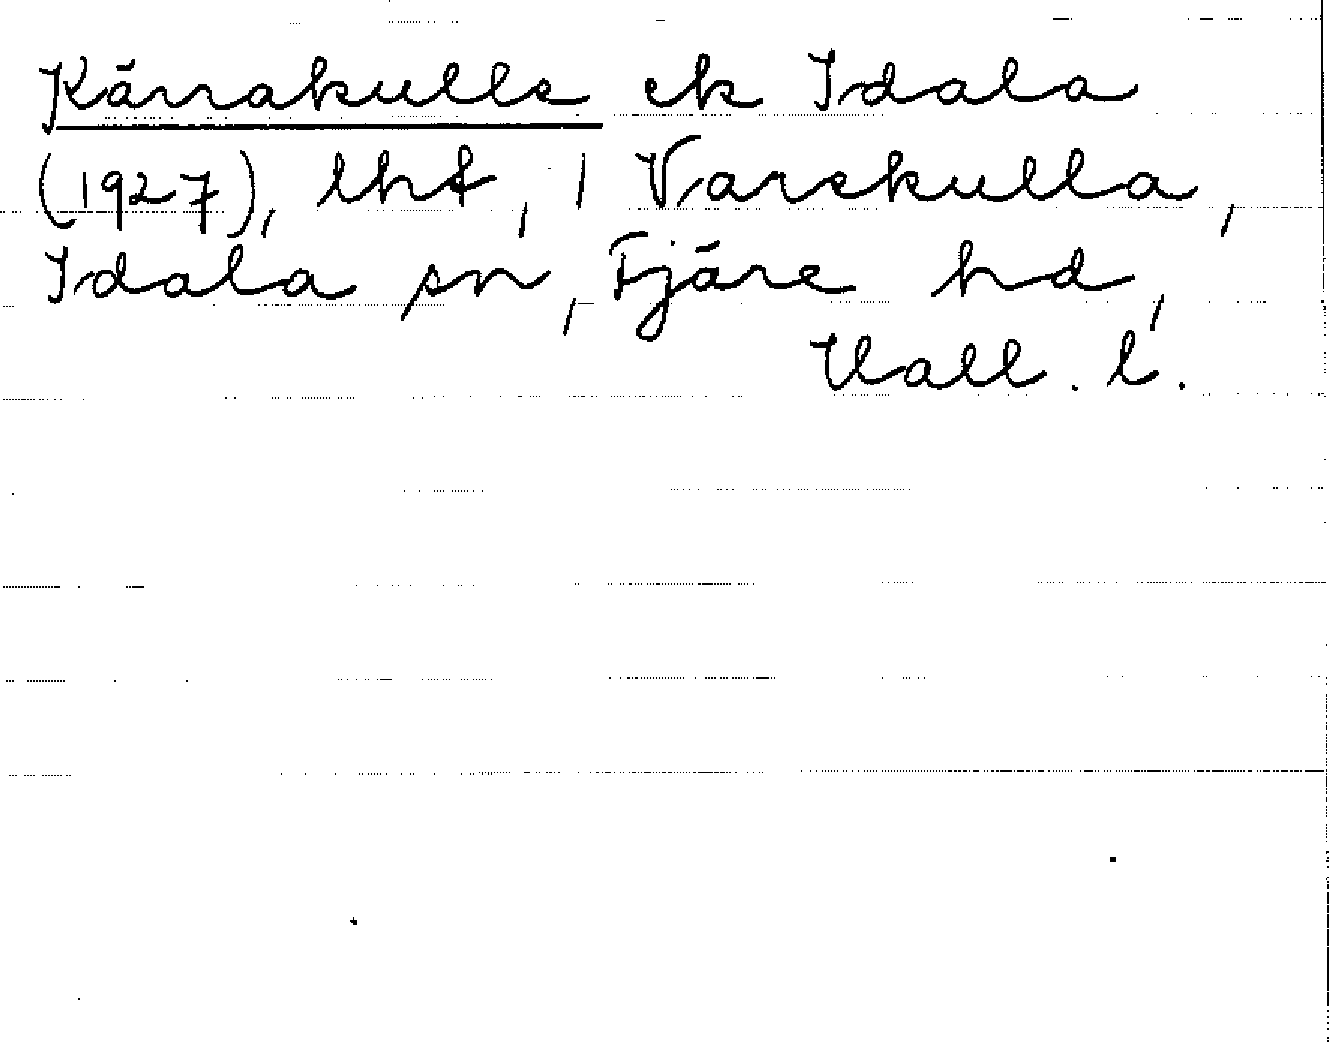 Kärrakulle ek Idala
(1927), lht, 1 Varekulla,
Idala sn, Fjäre hd,
Hall. l.